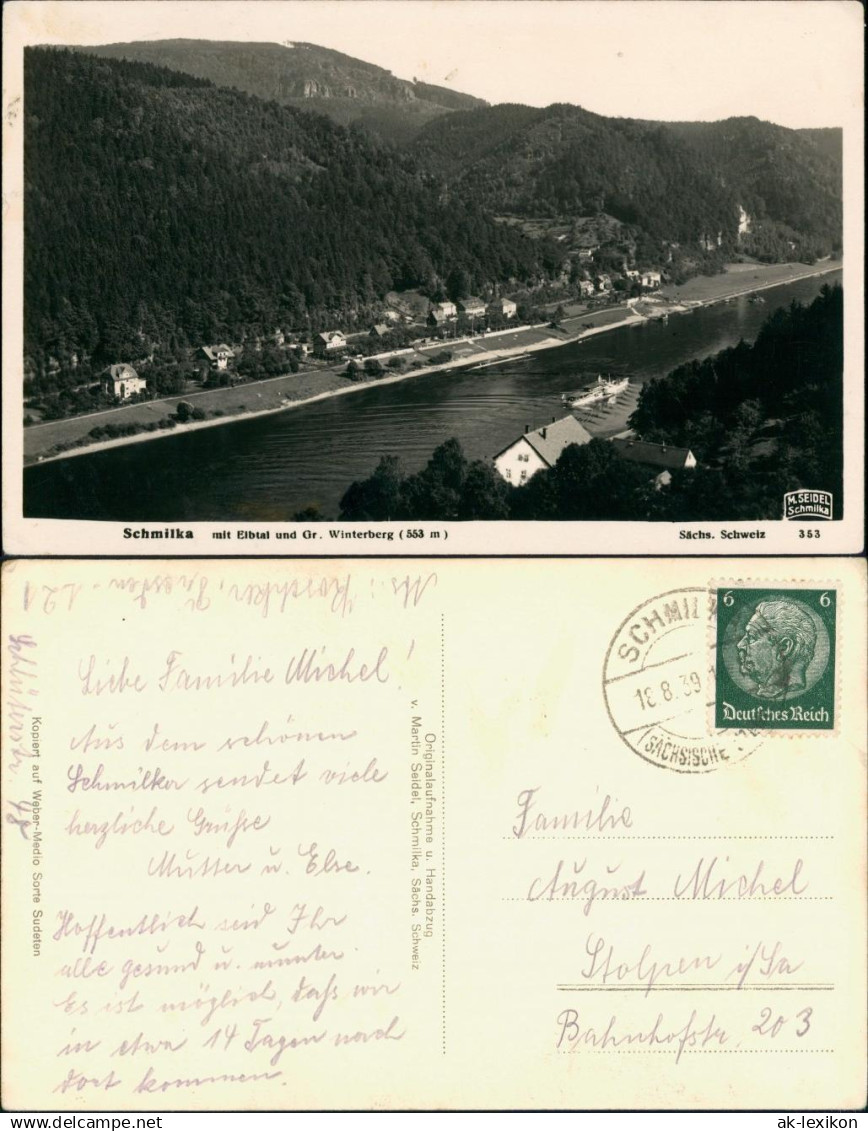 M. SEIDEL
Schmilka
Schmilka mit Elbtal und Gr. Winterberg (553 m) Sächs. Schweiz 353
Dresden-A 21
Liebe Familie Michel!
Aus dem schönen
Schmilka sendet viele
herzliche Grüße
Mutter u. Else.
Hoffentlich seid Ihr
alle gesund u. munter.
Es ist möglich, daß wir
in etwa 14 Tagen noch
dort kommen.
Kopiert auf Weber-Medio Sorte Sudeten
Originalaufnahme u. Handabzug
v. Martin Seidel, Schmilka, Sächs. Schweiz
SCHMILKA
18.8.39
(SÄCHSISCHE
6 6
Deutsches Reich
Familie
August Michel
Stolpen i/Sa
Bahnhofstr. 203
delcampe.net
ak-lexikon